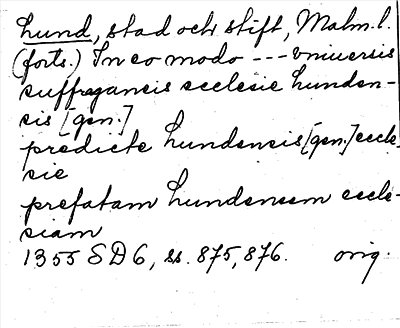 Lund, stad och stift, Malm. l.
(forts.) In eo modo --- vniuersis
suffraganeis ecclesie Lunden-
sis [gen.]
predicte Lundensis [gen.] eccle-
sie
prefatam Lundensem eccle-
siam
1355 SD 6, ss. 875, 876. orig.